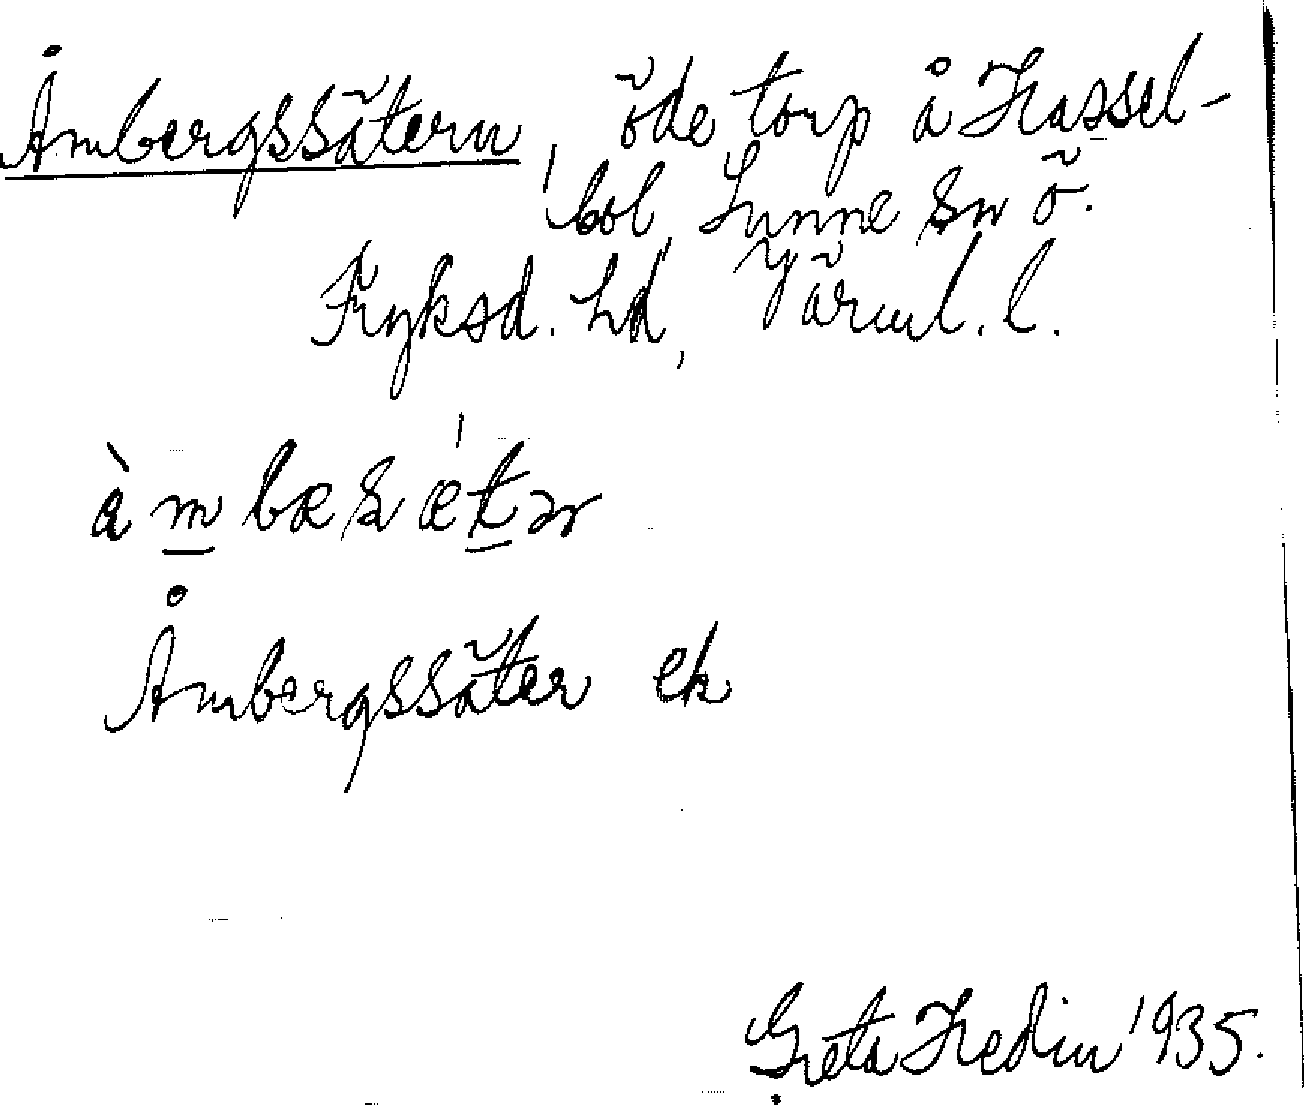 Åmbergssätern, öde torp å Hassel-
bol Sunne sn ö.
Fryksd. hd, Värml. l.
àmbæsætər
Åmbergssäter ek
Greta Hedin 1935.